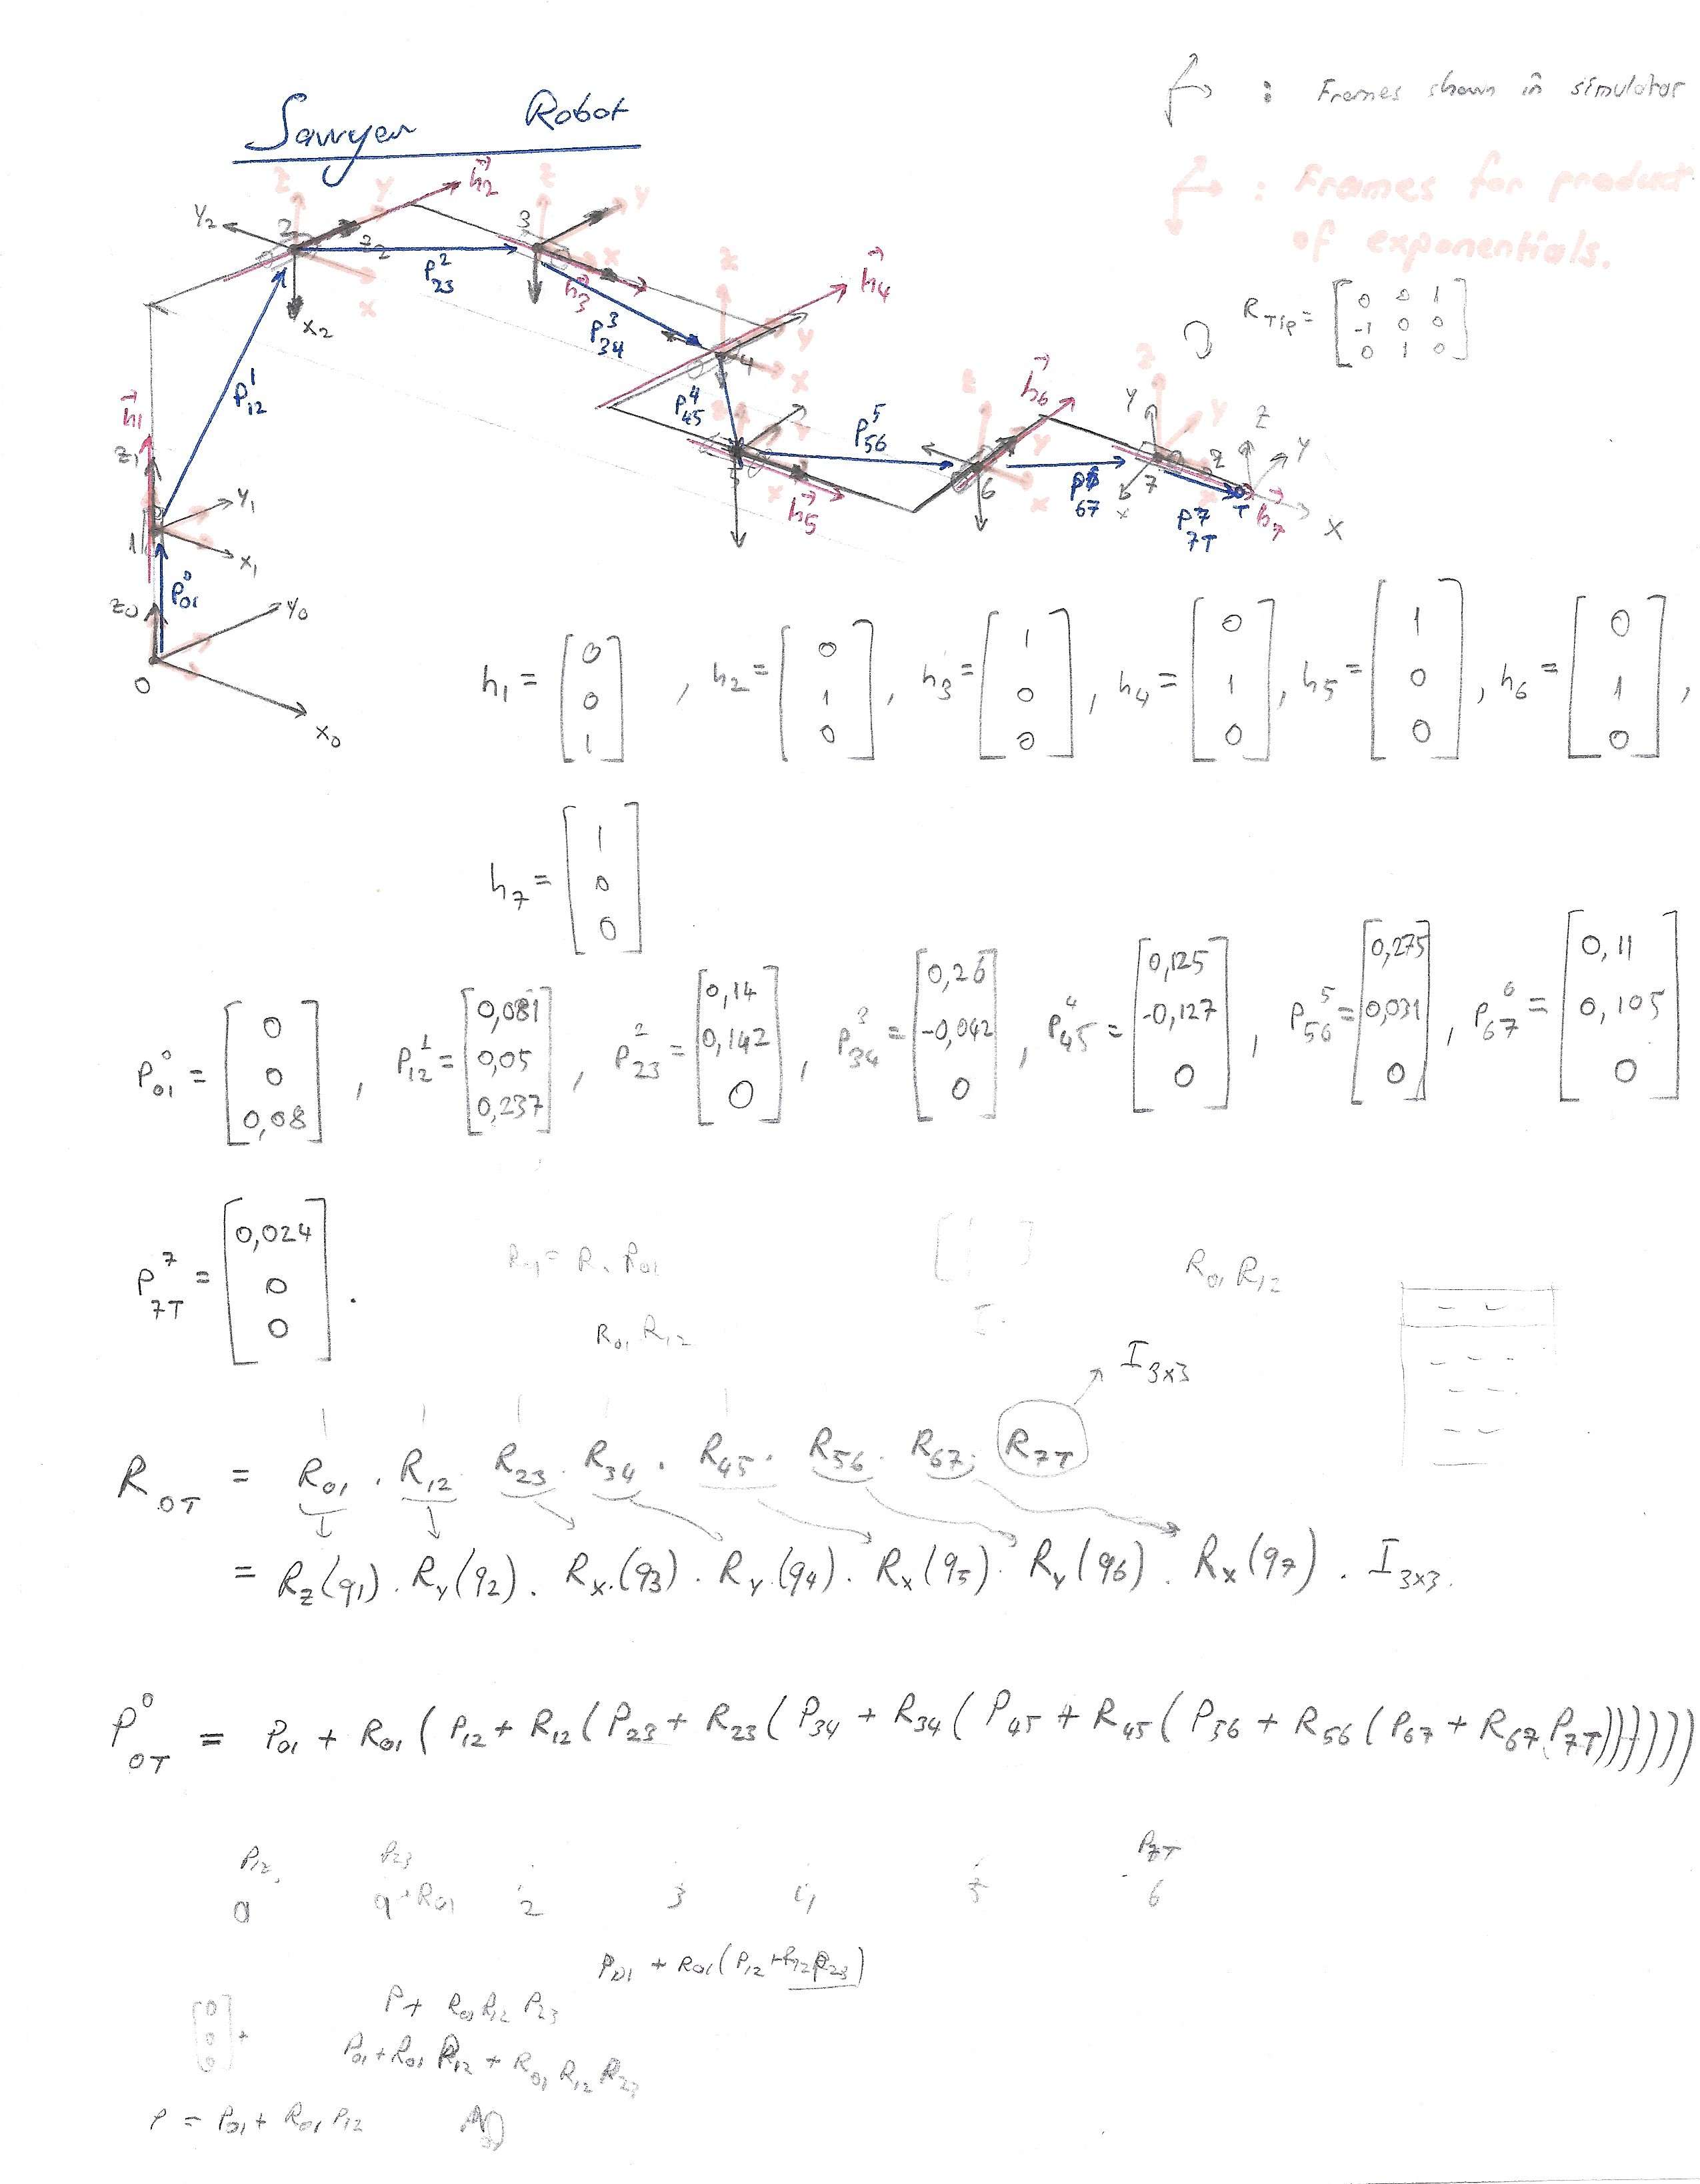 Sawyer Robot
: Frames shown in simulator
: Frames for product
of exponentials.
R_Tip = [0 0 1; -1 0 0; 0 1 0]
z y x z y x z y x z y x z y x
h⃗1 h⃗2 h⃗3 h⃗4 h⃗5 h⃗6 h⃗7
P⁰01 P¹12 P²23 P³34 P⁴45 P⁵56 P⁶67 P⁷7T
0 1 2 3 4 5 6 7 T
z0 y0 x0 z1 y1 x1 z2 y2 x2
h1 = [0 0 1] , h2 = [0 1 0] , h3 = [1 0 0] , h4 = [0 1 0] , h5 = [1 0 0] , h6 = [0 1 0] ,
h7 = [1 0 0]
P⁰01 = [0 0 0,08] , P¹12 = [0,081 0,05 0,237] , P²23 = [0,14 0,142 0] , P³34 = [0,26 -0,042 0] , P⁴45 = [0,125 -0,127 0] , P⁵56 = [0,275 0,031 0] , P⁶67 = [0,11 0,105 0]
P⁷7T = [0,024 0 0] .
R01 R12
R01 R12
I3x3
R0T = R01 . R12 . R23 . R34 . R45 . R56 . R67 . R7T
= Rz(q1) . Ry(q2) . Rx(q3) . Ry(q4) . Rx(q5) . Ry(q6) . Rx(q7) . I3x3.
P⁰0T = P01 + R01 ( P12 + R12 ( P23 + R23 ( P34 + R34 ( P45 + R45 ( P56 + R56 ( P67 + R67 P7T ))))))
P12 P23 P7T
0 2 3 4 5 6
P01 + R01 ( P12 + R12 P23 )
P + R01 R12 P23
[0 0 0] + P01 + R01 P12 + R01 R12 P23
P = P01 + R01 P12